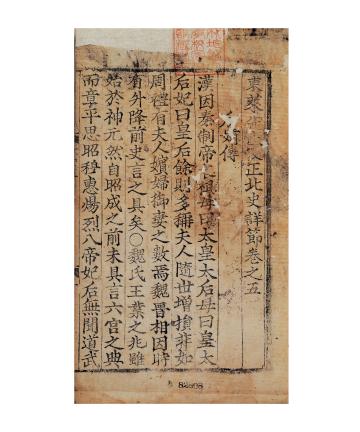 東萊先生校正北史詳節卷之五
后妃傳
漢因秦制帝之祖母曰太皇太后母曰皇太
后妃曰皇后餘則多稱夫人隨世增損非如
周禮有夫人嬪婦御妻之數焉魏晉相因時
有外降前史言之具矣○魏氏王業之兆雖
始於神元然自昭成之前未具言六宮之典
而章平思昭穆惠煬烈八帝妃后無聞道武